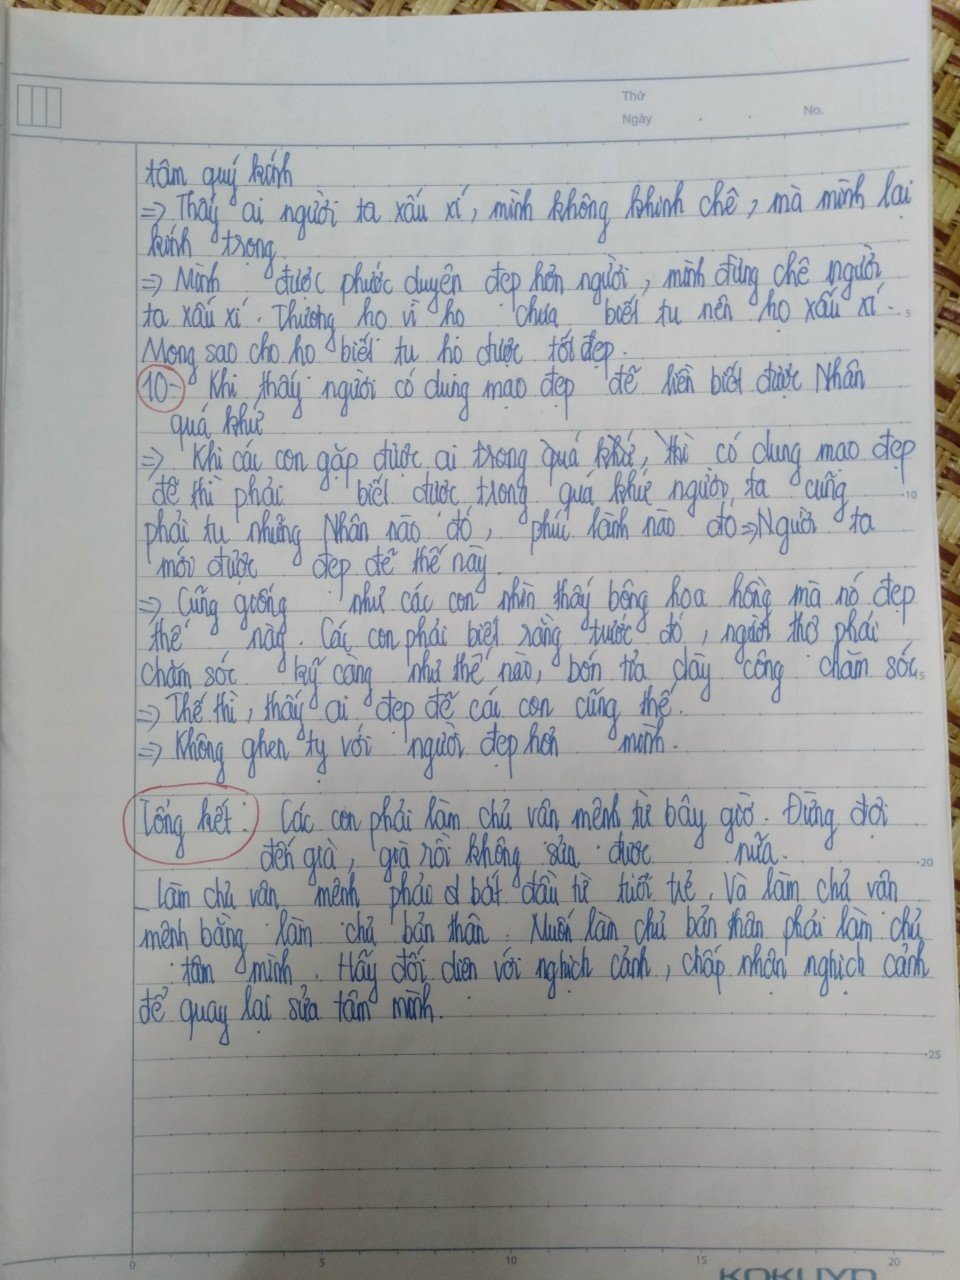 Thứ
Ngày . . No.
tâm quý kính
=> Thấy ai người ta xấu xí, mình không khinh chê, mà mình lại
kính trọng.
=> Mình được phước duyên đẹp hơn người, mình đừng chê người
ta xấu xí. Thương họ vì họ chưa biết tu nên họ xấu xí.
Mong sao cho họ biết tu họ được tốt đẹp.
10- Khi thấy người có dung mạo đẹp đẽ liền biết được Nhân
quá khứ
=> Khi các con gặp được ai trong quá khứ, thì có dung mạo đẹp
đẽ thì phải biết được trong quá khứ người ta cũng
phải tu những Nhân nào đó, phúc lành nào đó => Người ta
mới được đẹp đẽ thế này.
=> Cũng giống như các con nhìn thấy bông hoa hồng mà nó đẹp
thế này. Các con phải biết rằng trước đó, người thợ phải
chăm sóc kỹ càng như thế nào, bón tỉa dày công chăm sóc.
=> Thế thì, thấy ai đẹp đẽ các con cũng thế.
=> Không ghen tỵ với người đẹp hơn mình.
Tổng kết: Các con phải làm chủ vận mệnh từ bây giờ. Đừng đợi
đến già, già rồi không sửa được nữa.
_ Làm chủ vận mệnh phải bắt đầu từ tuổi trẻ. Và làm chủ vận
mệnh bằng làm chủ bản thân. Muốn làn chủ bản thân phải làm chủ
tâm mình. Hãy đối diện với nghịch cảnh, chấp nhận nghịch cảnh
để quay lại sửa tâm mình.
5
10
20
25
0 5 10 15 20
KOKUYO